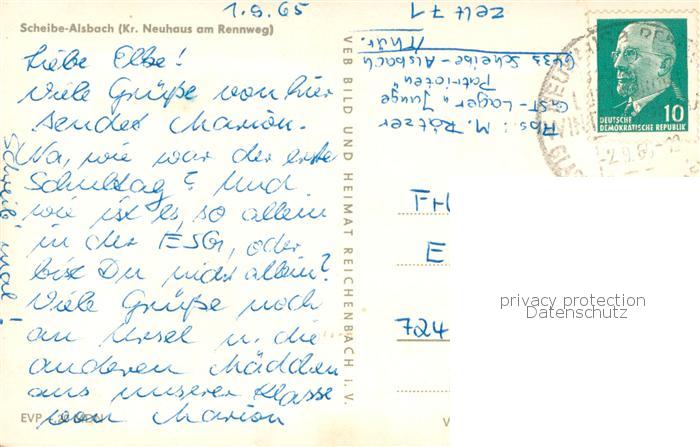 1.9.65
Scheibe-Alsbach (Kr. Neuhaus am Rennweg)
Liebe Elke!
Viele Grüße von hier
sendet Marion.
Na, wie war der erste
Schultag? Und
wie ist es, so allein
in der ESG, oder
bist Du nicht allein?
Viele Grüße noch
an Ursel u. die
anderen Mädchen
aus unserer Klasse
von Marion
Schreib' mal!
EVP
VEB BILD UND HEIMAT REICHENBACH i. V.
Abs.: M. Rätzer
GST-Lager "Junge
Patrioten"
6433 Scheibe-Alsbach
/Thür.
Zelt 71
10
DEUTSCHE
DEMOKRATISCHE REPUBLIK
-2.9.65-
E
724
V
privacy protection
Datenschutz